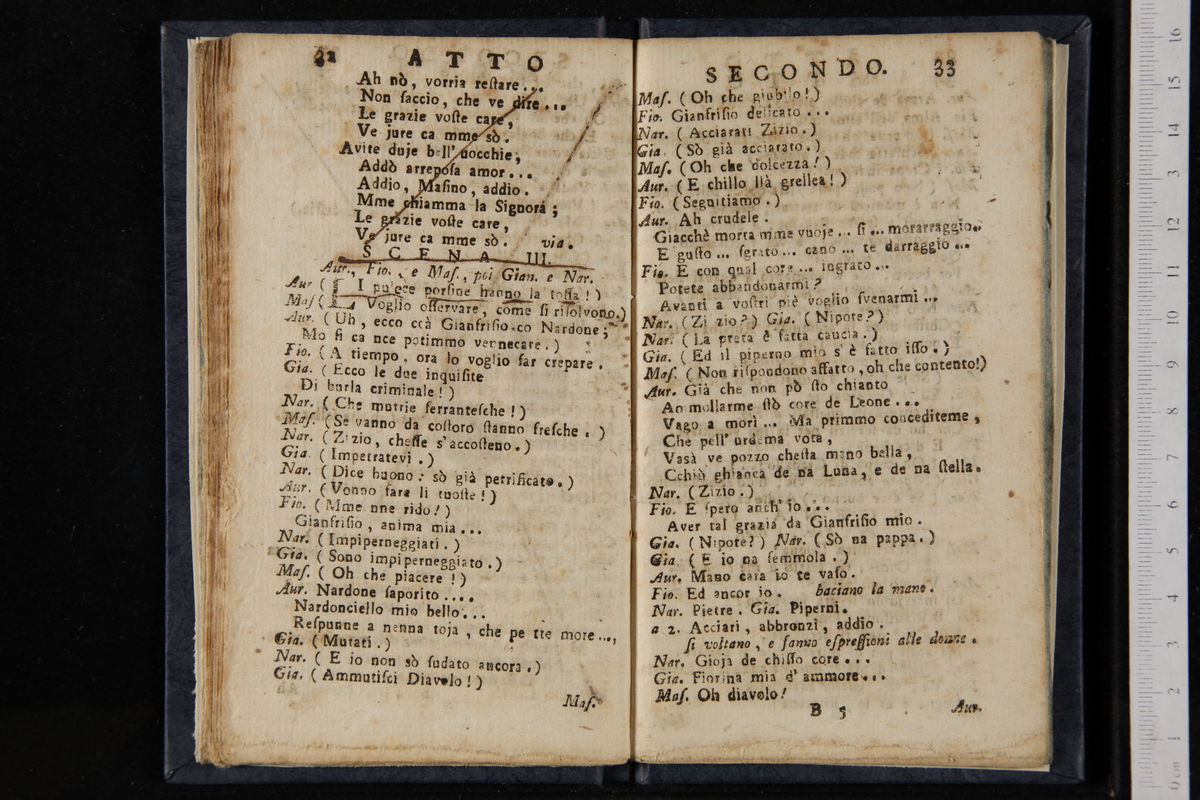 32 ATTO
Ah nò, vorria reſtare...
Non ſaccio, che ve dire...
Le grazie voſte care,
Ve jure ca mme sò.
Avite duje bell' uocchie,
Addò arrepoſa amor...
Addio, Maſino, addio.
Mme chiamma la Signora;
Le grazie voſte care,
Ve jure ca mme sò. via.
SCENA III.
Aur., Fio., e Maſ., poi Gian. e Nar.
Aur ( I pu'ece porſine hanno la toſſa!)
Maſ ( Voglio oſſervare, come ſi riſolvono.)
Aur. (Uh, ecco ccà Gianfriſio co Nardone;
Mo ſi ca nce potimmo vennecare.)
Fio. (A tiempo, ora lo voglio far crepare.
Gia. (Ecco le due inquiſite
Di burla criminale!)
Nar. (Che mutrie ferranteſche!)
Maſ. (Se vanno da coſtoro ſtanno freſche.)
Nar. (Zizio, cheſſe s'accoſteno.)
Gia. (Impetratevi.)
Nar. (Dice buono: sò già petrificato.)
Aur. (Vonno fare li tuoſte!)
Fio. (Mme nne rido!)
Gianfriſio, anima mia...
Nar. (Impiperneggiati.)
Gia. (Sono impiperneggiato.)
Maſ. (Oh che piacere!)
Aur. Nardone ſaporito....
Nardonciello mio bello...
Reſpunne a nenna toja, che pe tte more...,
Gia. (Mutati.)
Nar. (E io non sò ſudato ancora.)
Gia. (Ammutiſci Diavolo!)
Maſ.
SECONDO. 33
Maſ. (Oh che giubilo!)
Fio. Gianfriſio delicato...
Nar. (Acciarati Zizio.)
Gia. (Sò già acciarato.)
Maſ. (Oh che dolcezza!)
Aur. (E chillo llà grellea!)
Fio. (Seguitiamo.)
Aur. Ah crudele.
Giacchè morta mme vuoje... ſì... morarraggio..
E guſto... ſgrato... cano... te darraggio...
Fio. E con qual core... ingrato...
Potete abbandonarmi?
Avanti a voſtri piè voglio ſvenarmi...
Nar. (Zi zio?) Gia. (Nipote?)
Nar. (La preta è fatta caucia.)
Gia. (Ed il piperno mio s'è fatto iſſo.)
Maſ. (Non riſpondono affatto, oh che contento!)
Aur. Già che non pò ſto chianto
Ammollarme ſtò core de Leone...
Vago a morì... Ma primmo concediteme,
Che pell' urdema vota,
Vasà ve pozzo cheſta mano bella,
Cchiù ghianca de na Luna, e de na ſtella.
Nar. (Zizio.)
Fio. E ſpero anch' io...
Aver tal grazia da Gianfriſio mio.
Gia. (Nipote?) Nar. (Sò na pappa.)
Gia. (E io na femmola.)
Aur. Mano cara io te vaſo.
Fio. Ed ancor io. baciano la mano.
Nar. Pietre. Gia. Piperni.
a 2. Acciari, abbronzi, addio.
ſi voltano, e fanno eſpreſſioni alle donne.
Nar. Gioja de chiſſo core...
Gia. Fiorina mia d' ammore...
Maſ. Oh diavolo!
B 5 Aur.
16
15
14
13
12
11
10
9
8
7
6
5
4
3
2
1
0 cm